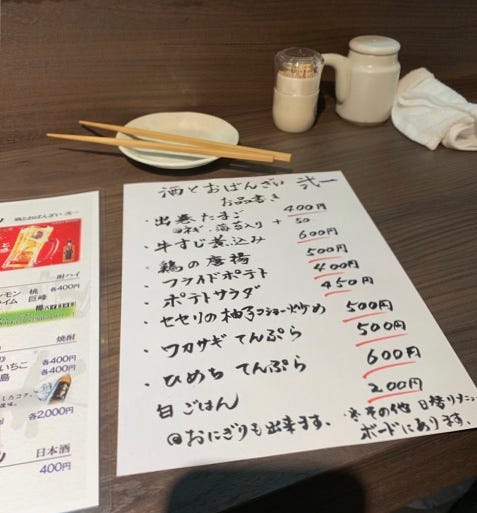 酒とおばんざい 弐一
お品書き
・出巻たまご 400円
ネギ・海苔入り + 50
・牛すじ煮込み 600円
・鶏の唐揚 500円
・フライドポテト 400円
・ポテトサラダ 450円
・セセリの柚子コショー炒め 500円
・ワカサギてんぷら 500円
・ひめち てんぷら 600円
白ごはん 200円
@おにぎりも出来ます。
※その他 日替りメニュー
ボードにあります。
酒とおばんざい 弐一
酎ハイ
レモン 桃 各400円
ライム 巨峰
焼酎
いちこ 各400円
島 各400円
各2,000円
日本酒
400円